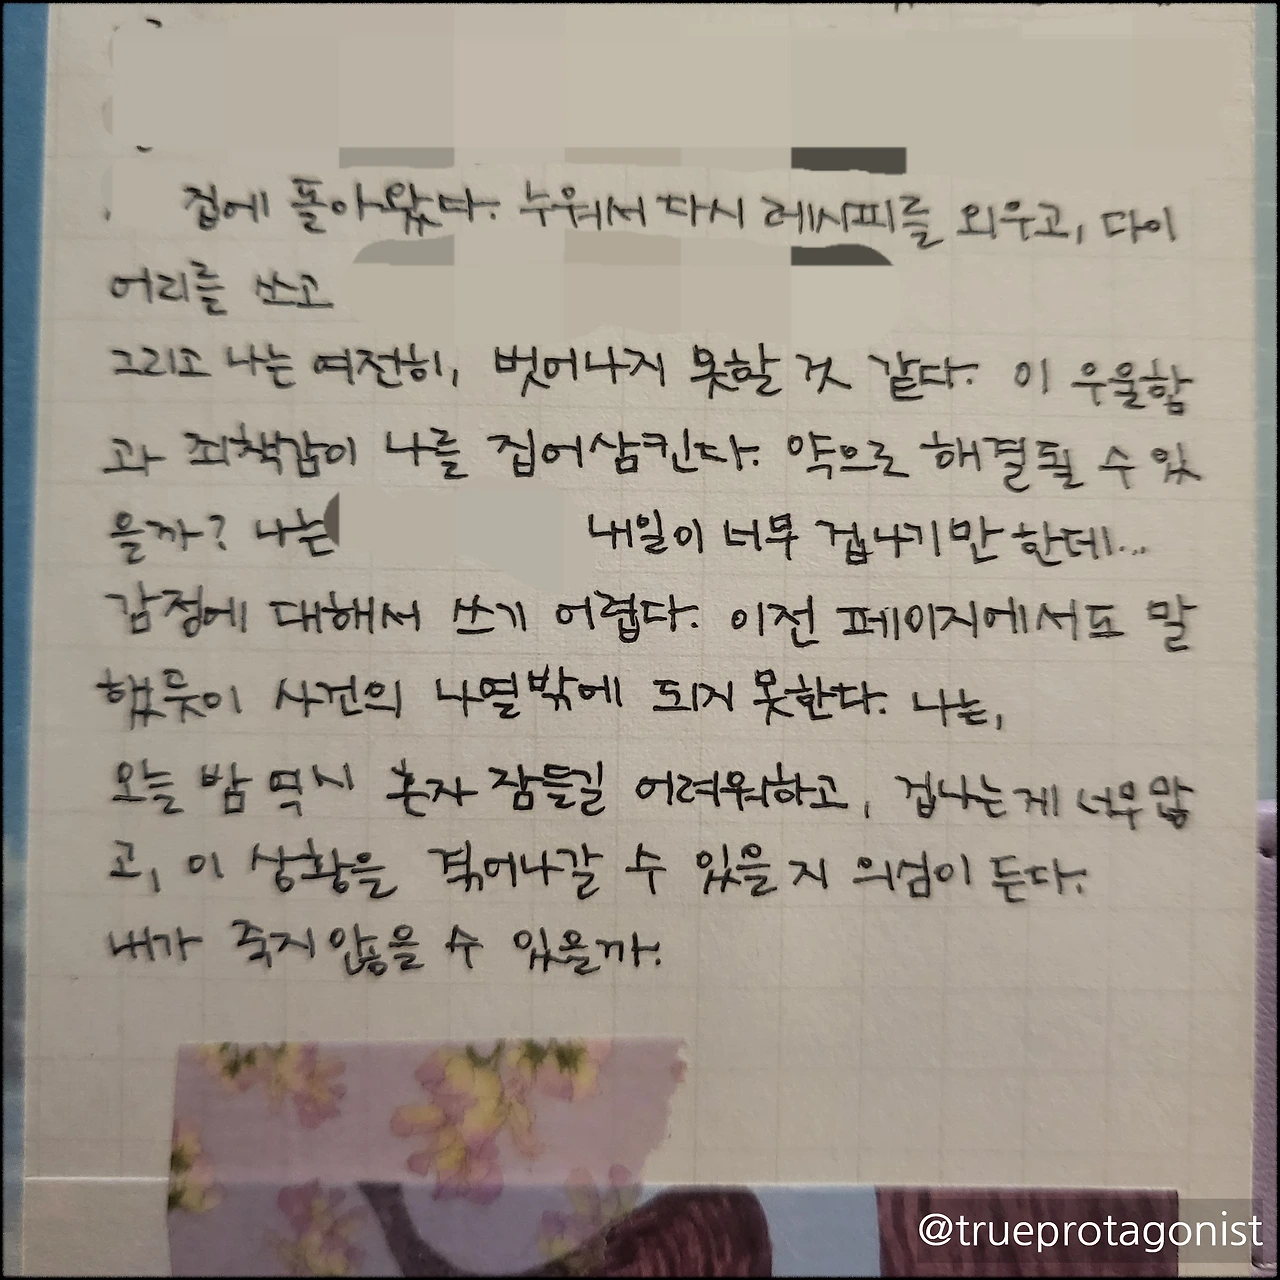 집에 돌아왔다. 누워서 다시 레시피를 외우고, 다이
어리를 쓰고
그리고 나는 여전히, 벗어나지 못할 것 같다. 이 우울함
과 죄책감이 나를 집어삼킨다. 약으로 해결될 수 있
을까? 나는 내일이 너무 겁나기만 한데...
감정에 대해서 쓰기 어렵다. 이전 페이지에서도 말
했듯이 사건의 나열밖에 되지 못한다. 나는,
오늘 밤 역시 혼자 잠들길 어려워하고, 겁나는게 너무 많
고, 이 상황을 겪어나갈 수 있을 지 의심이 든다.
내가 죽지 않을 수 있을까.
@trueprotagonist